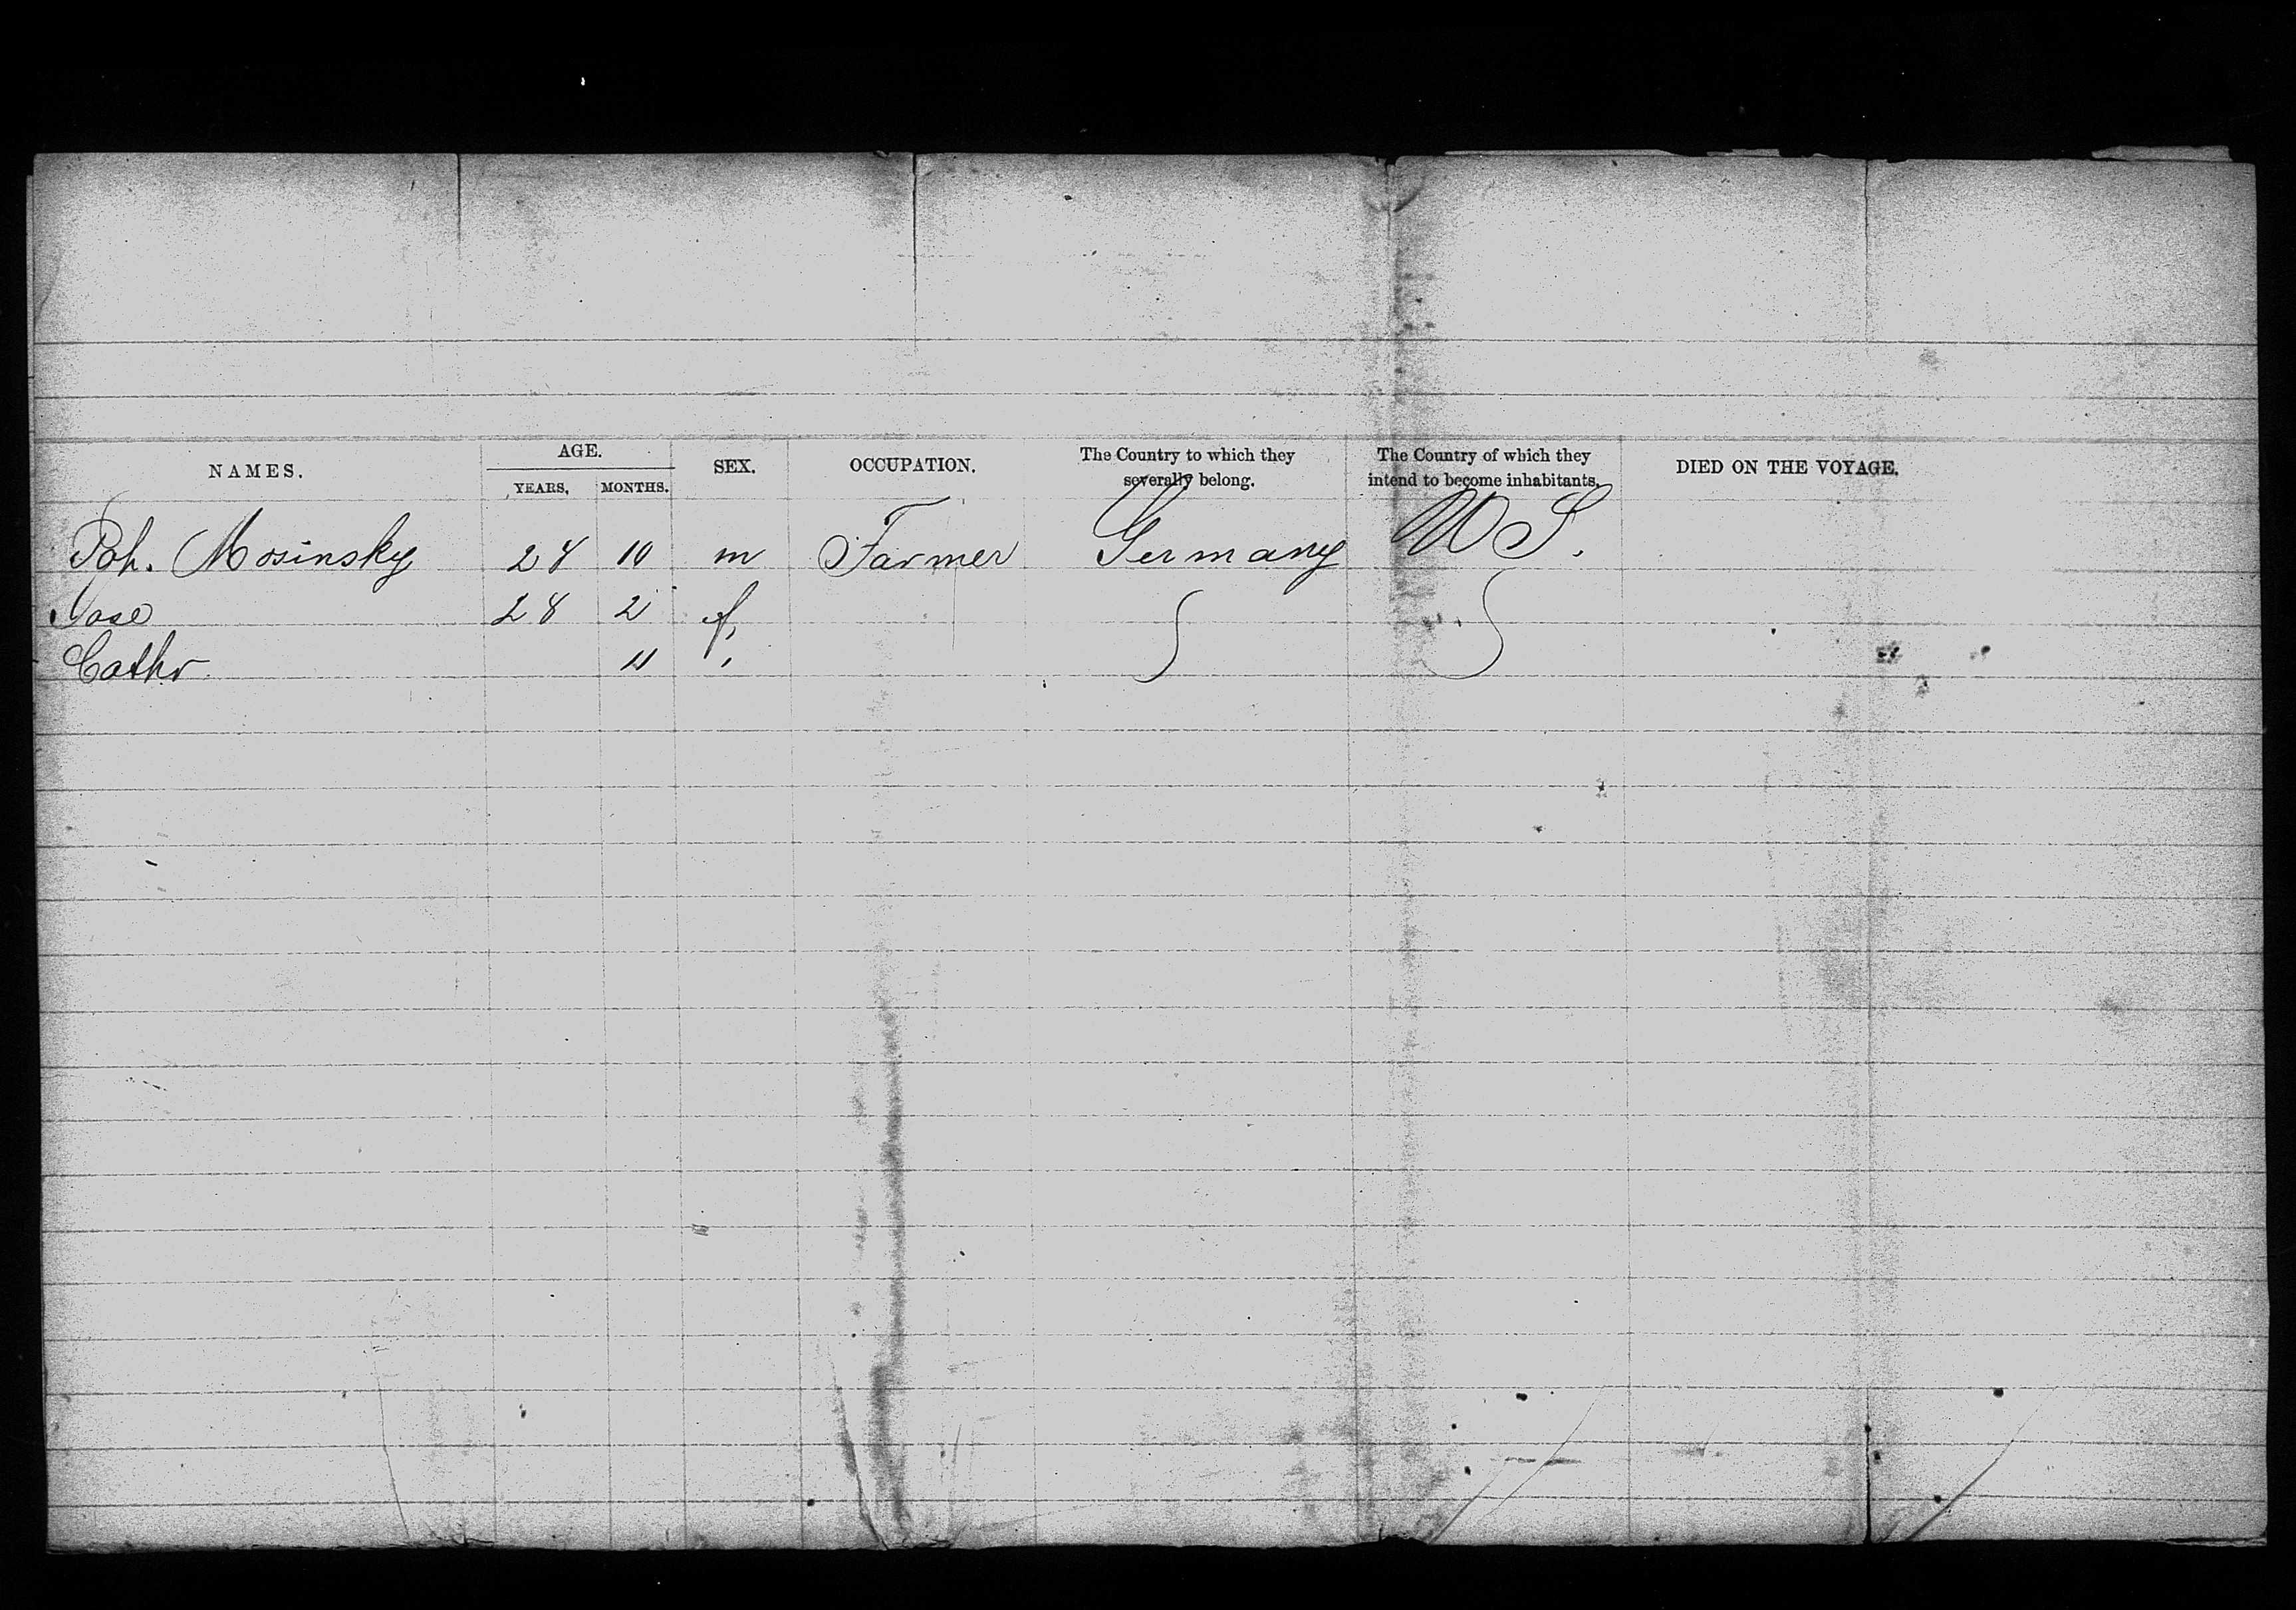 NAMES. AGE. SEX. OCCUPATION. The Country to which they severally belong. The Country of which they intend to become inhabitants. DIED ON THE VOYAGE.
YEARS, MONTHS.
Joh. Mosinsky 28 10 m Farmer Germany U S.
28 2 f,
Cathr 11 "